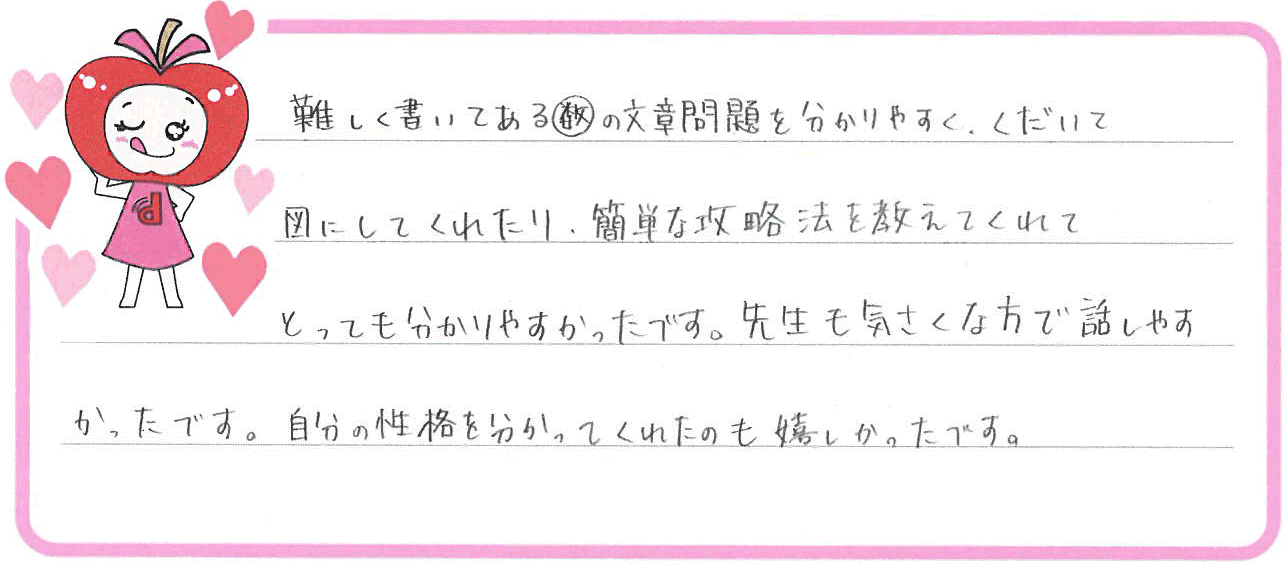 難しく書いてある㊙数の文章問題を分かりやすく、くだいて
図にしてくれたり、簡単な攻略法を教えてくれて
とっても分かりやすかったです。先生も気さくな方で話しやす
かったです。自分の性格を分かってくれたのも嬉しかったです。